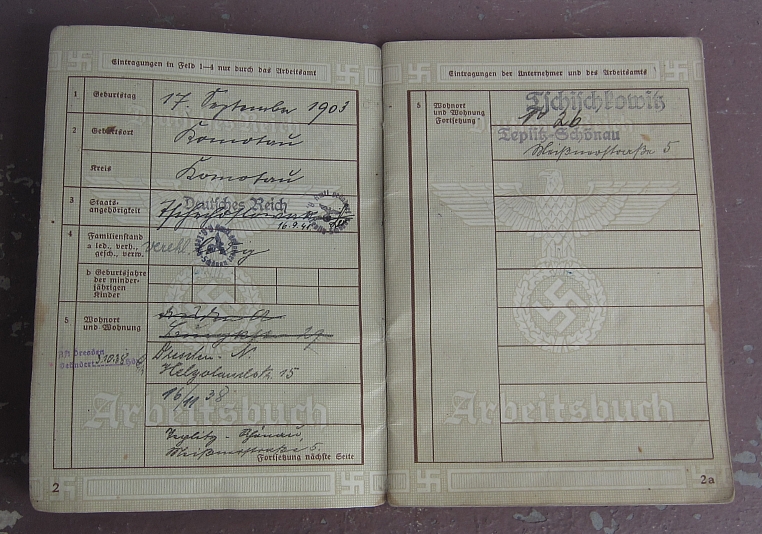 Eintragungen in Feld 1—4 nur durch das Arbeitsamt
1 Geburtstag 17. September 1903
2 Geburtsort Komotau
Kreis Komotau
3 Staats-
angehörigkeit
Deutsches Reich
16.9.41
4 Familienstand
a led., verh.,
gesch., verw.
verehl.
b Geburtsjahre
der minder-
jährigen
Kinder
5 Wohnort
und Wohnung
29
Dresden - N.
Helgolandstr. 15
16/11 38
Teplitz - Schönau,
Meißnerstraße 5.
Fortsetzung nächste Seite
Arbeitsbuch
2
Eintragungen der Unternehmer und des Arbeitsamts
5 Wohnort
und Wohnung
Fortsetzung
Tschischkowitz
No 26
Teplitz-Schönau
Meißnerstraße 5
Arbeitsbuch
2a